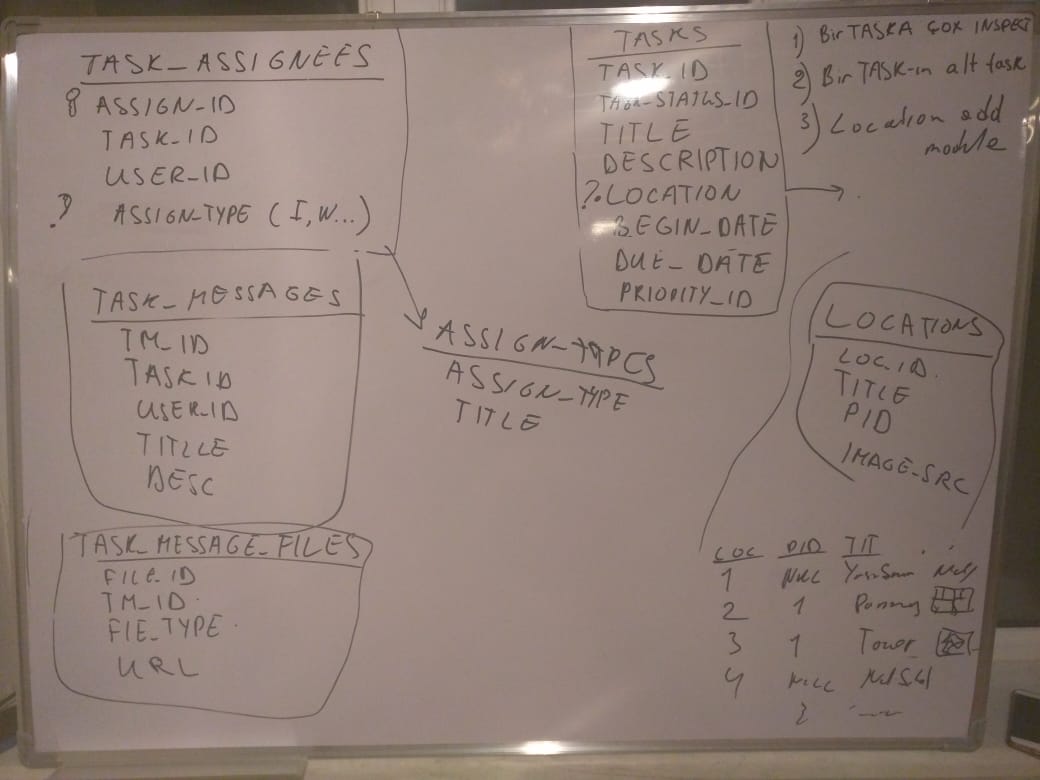 TASK_ASSIGNEES
ASSIGN_ID
TASK_ID
USER_ID
? ASSIGN_TYPE (I, W...)
TASK_MESSAGES
TM_ID
TASK ID
USER_ID
TITLLE
DESC
TASK_MESSAGE_FILES
FILE_ID
TM_ID
FIE_TYPE
URL
ASSIGN_TYPES
ASSIGN_TYPE
TITLE
TASKS
TASK_ID
TASK_STATUS_ID
TITLE
DESCRIPTION
?.LOCATION
BEGIN_DATE
DUE_DATE
PRIORITY_ID
1) Bir TASKA ÇOX INSPECT
2) Bir TASK-ın alt task
3) Location add
module
LOCATIONS
LOC_ID
TITLE
PID
IMAGE_SRC
LOC PID TIT . .
1 NULL
2 1
3 1 Tower
4 NULL